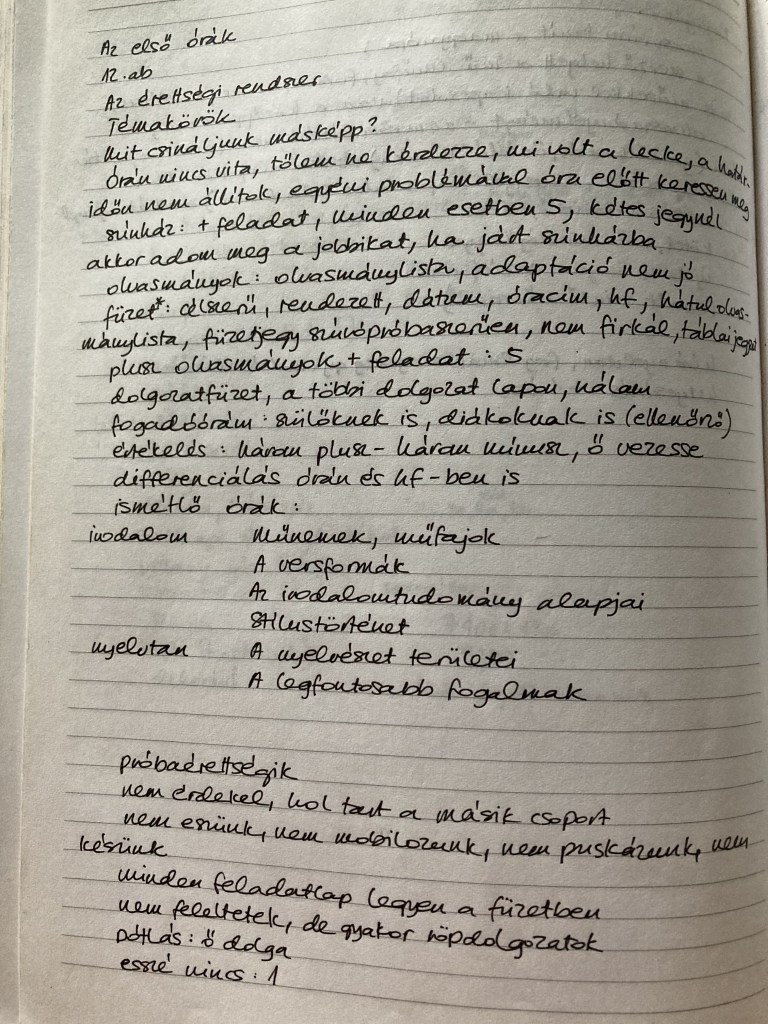 Az első órák
12.ab
Az érettségi rendszer
Témakörök
Mit csináljunk másképp?
Órán nincs vita, tőlem ne kérdezze, mi volt a lecke, a határ-
időn nem állítok, egyéni problémával óra előtt keressen meg
színház: + feladat, minden esetben 5, kétes jegynél
akkor adom meg a jobbikat, ha járt színházba
olvasmányok: olvasmánylista, adaptáció nem jó
füzet*: célszerű, rendezett, dátum, óracím, hf, hátul olvas-
mánylista, füzetjegy szúrópróbaszerűen, nem firkál, táblai jegyzet
plusz olvasmányok + feladat: 5
dolgozatfüzet, a többi dolgozat lapon, nálam
fogadóórám: szülőknek is, diákoknak is (ellenőrző)
értékelés: három plusz - három mínusz, ő vezesse
differenciálás órán és hf-ben is
ismétlő órák:
irodalom Műnemek, műfajok
A versformák
Az irodalomtudomány alapjai
Stílustörténet
nyelvtan A nyelvészet területei
A legfontosabb fogalmak
próbaérettségik
nem érdekel, hol tart a másik csoport
nem eszünk, nem mobilozunk, nem puskázunk, nem
késünk
minden feladatlap legyen a füzetben
nem feleltetek, de gyakor röpdolgozatok
pótlás: ő dolga
esszé nincs: 1